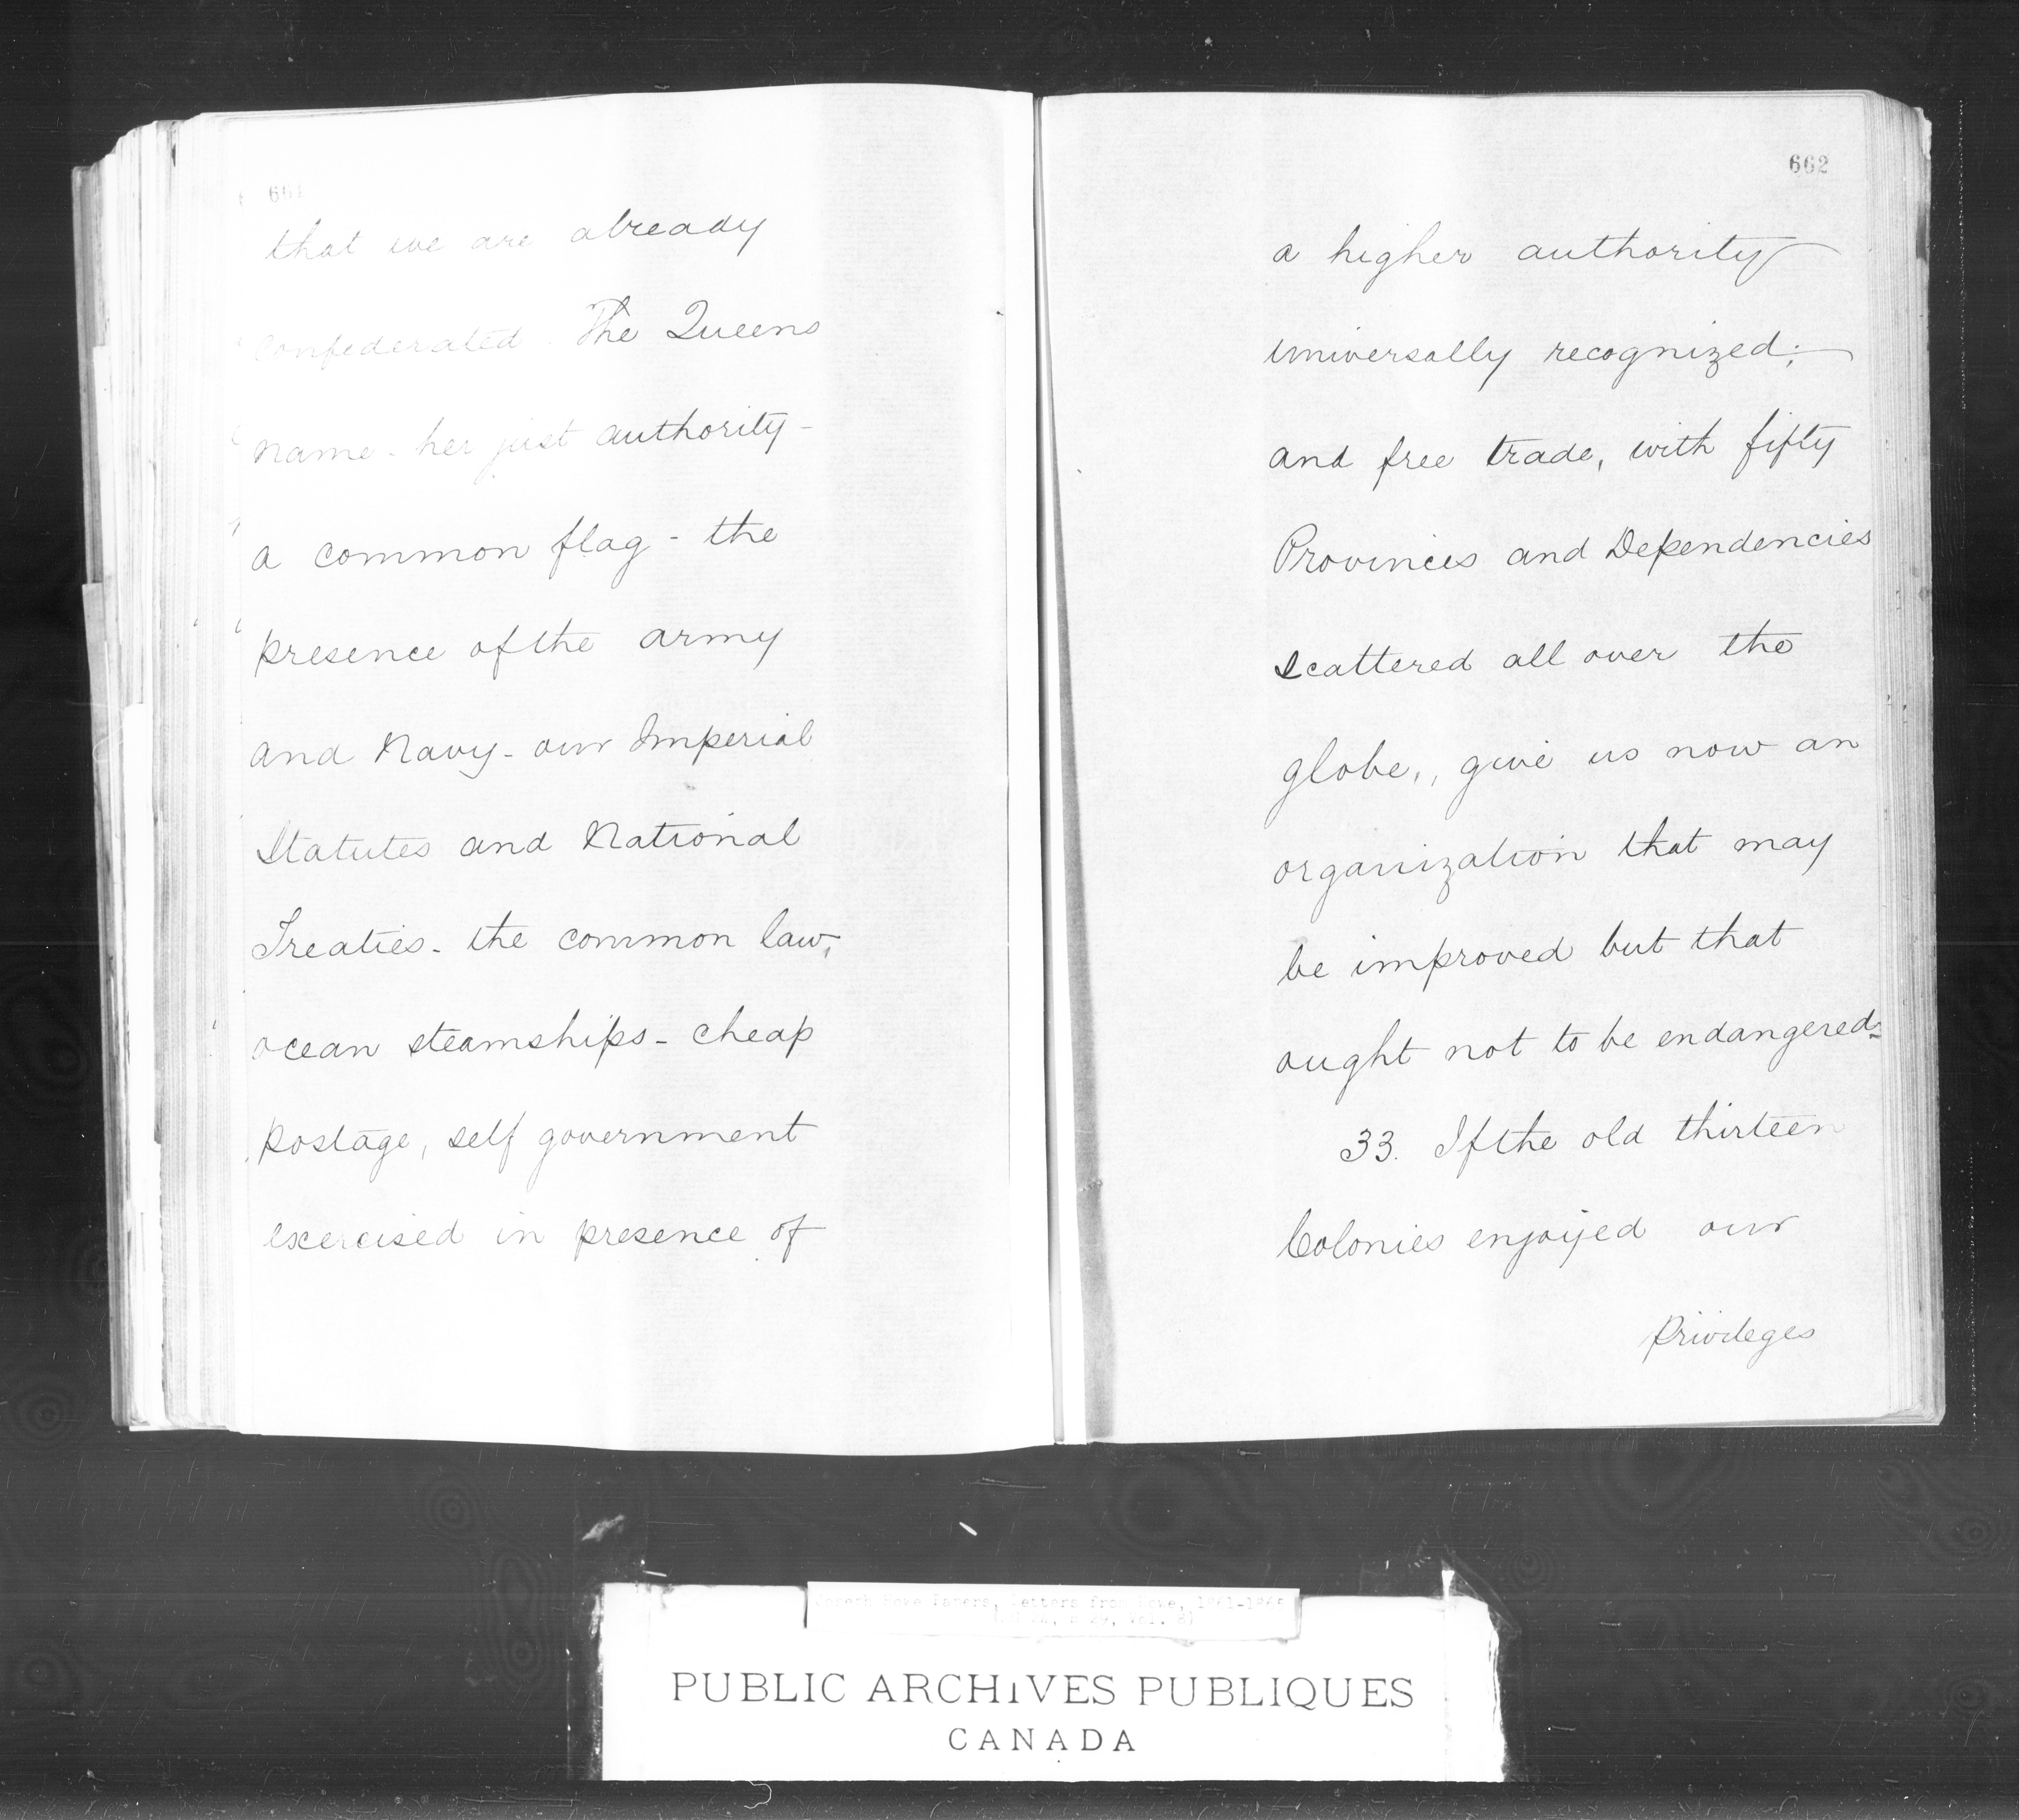 661
that we are already
confederated. The Queens
name - her just authority -
a common flag - the
presence of the army
and Navy - our Imperial
Statutes and National
Treaties - the common law,
ocean steamships - cheap
postage, self government
exercised in presence of
662
a higher authority
universally recognized;
and free trade, with fifty
Provinces and Dependencies
scattered all over the
globe,, give us now an
organization that may
be improved but that
ought not to be endangered.
33. If the old thirteen
Colonies enjoyed our
privileges
Joseph Howe Papers, Letters from Howe, 1861-
PUBLIC ARCHIVES PUBLIQUES
CANADA